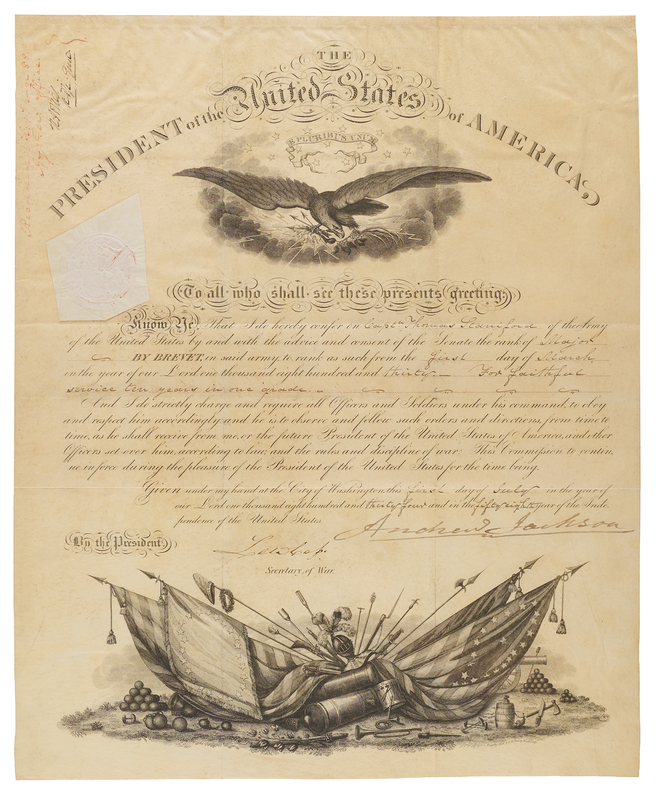 THE
PRESIDENT of the United States of AMERICA,
E PLURIBUS UNUM
To all who shall see these presents greeting:
Know Ye, That I do hereby confer on Captn. Thomas Staniford of the Army
of the United States by and with the advice and consent of the Senate the rank of Major
BY BREVET, in said army to rank as such from the first day of March,
in the year of our Lord one thousand eight hundred and thirty. For faithful
service ten years in one grade.
And I do strictly charge and require all Officers and Soldiers under his command, to obey
and respect him accordingly and he is to observe and follow such orders and directions, from time to
time, as he shall receive from me, or the future President of the United States of America, and other
Officers set over him, according to law, and the rules and discipline of war. This Commission to contin-
ue in force during the pleasure of the President of the United States for the time being.
Given under my hand at the City of Washington, this first day of July in the year of
our Lord one thousand eight hundred and thirty four and in the fifty eighth year of the Inde-
pendence of the United States.
Andrew Jackson
By the President,
Lew Cass
Secretary of War.